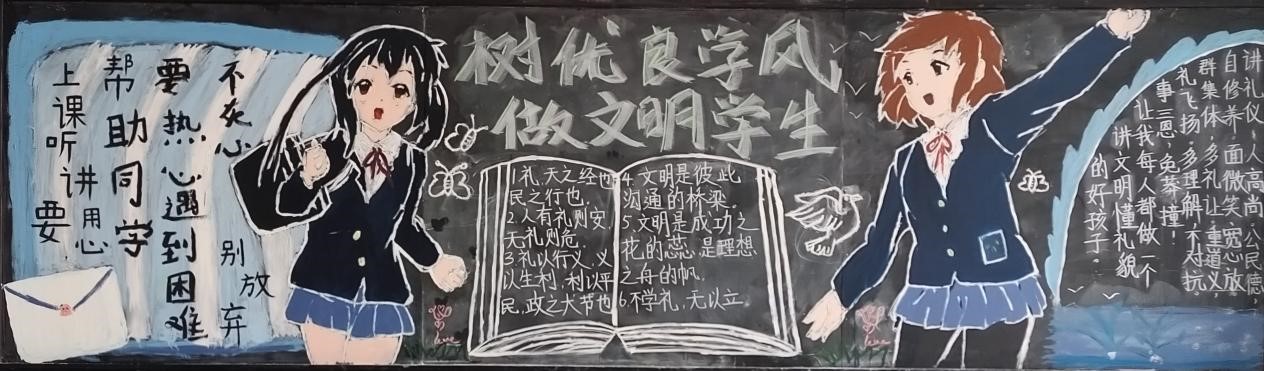 树优良学风
做文明学生
上课听讲要
用心
帮助同学
要热心遇到困难
不灰心
别放弃
1.礼,天之经也,
民之行也.
2.人有礼则安,
无礼则危.
3.礼以行义,义
以生利,利以平
民,政之大节也
4.文明是彼此
沟通的桥梁。
5.文明是成功之
花的蕊,是理想
之舟的帆。
6.不学礼,无以立.
讲礼仪、人高尚、公民德,
自修养、面微笑、宽忍放,
群集体、多礼让、重道义,
礼飞扬、多理解、不对抗.
事三思、免莽撞!
让我每人都做一个
讲文明懂礼貌
的好孩子.
love
love